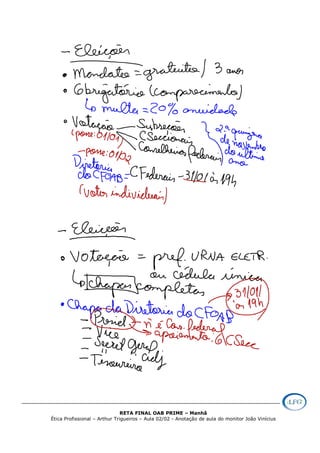 – Eleições
• Mandatos = gratuitos / 3 anos
• Obrigatório (comparecimento)
↳ multa = 20% anuidade
• Votação – Subseções
(posse: 01/01) CSeccionais
Conselheiros federais
2ª quinzena
de novembro
do último
ano
– posse: 01/02
Diretoria
do CFOAB = CFederais – 31/01 às 19h
(votos individuais)
– Eleições
• Votação = pref. URNA ELETR.
ou cédula única
↳ chapas completas
• Chapa da Diretoria do CFOAB
31/01/
às 19h
– Presid. → ñ é Cons. federal
– Vice → apoiamento 6 CSecc
– Secret Geral
– " Adj
– Tesoureiro
RETA FINAL OAB PRIME – Manhã
Ética Profissional – Arthur Trigueiros – Aula 02/02 - Anotação de aula do monitor João Vinícius